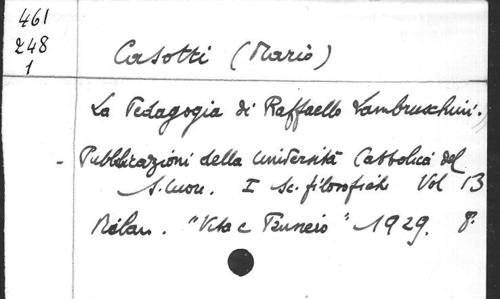 461
248
1
Casotti (Mario)
La Pedagogia di Raffaello Lambruschini.
- Pubblicazioni della Università Cattolica del
S. Cuore. I Sc. filosofiche Vol 13
Milan. "Vita e Pensiero" 1929. 8°.